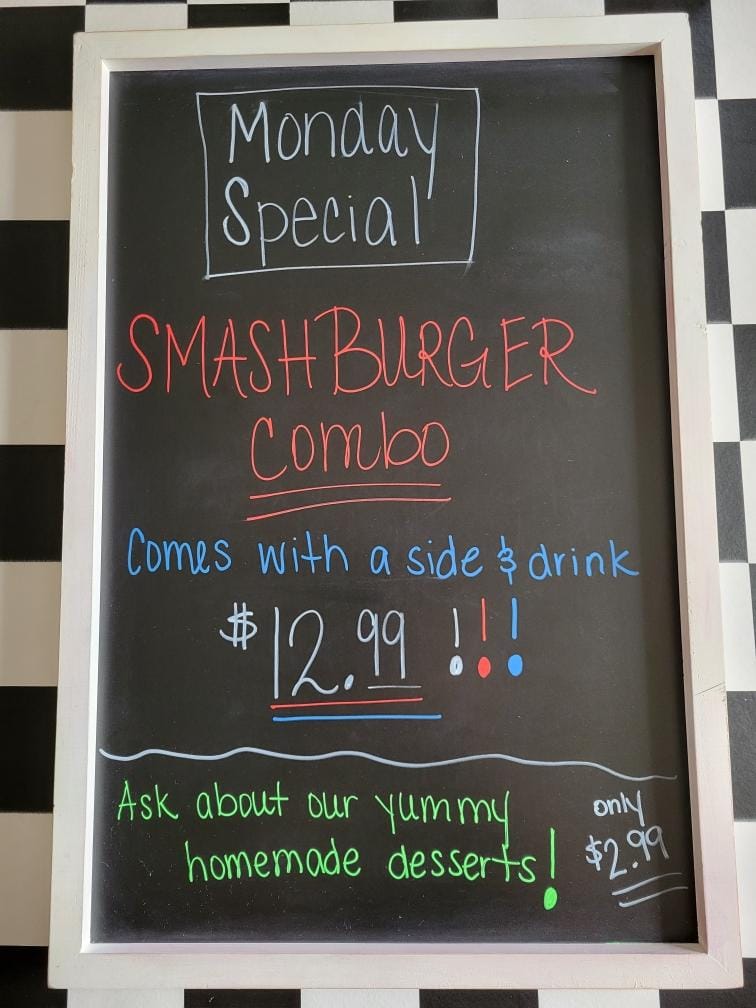 Monday
Special
SMASHBURGER
Combo
Comes with a side & drink
$12.99 !!!
Ask about our yummy
homemade desserts!
only
$2.99